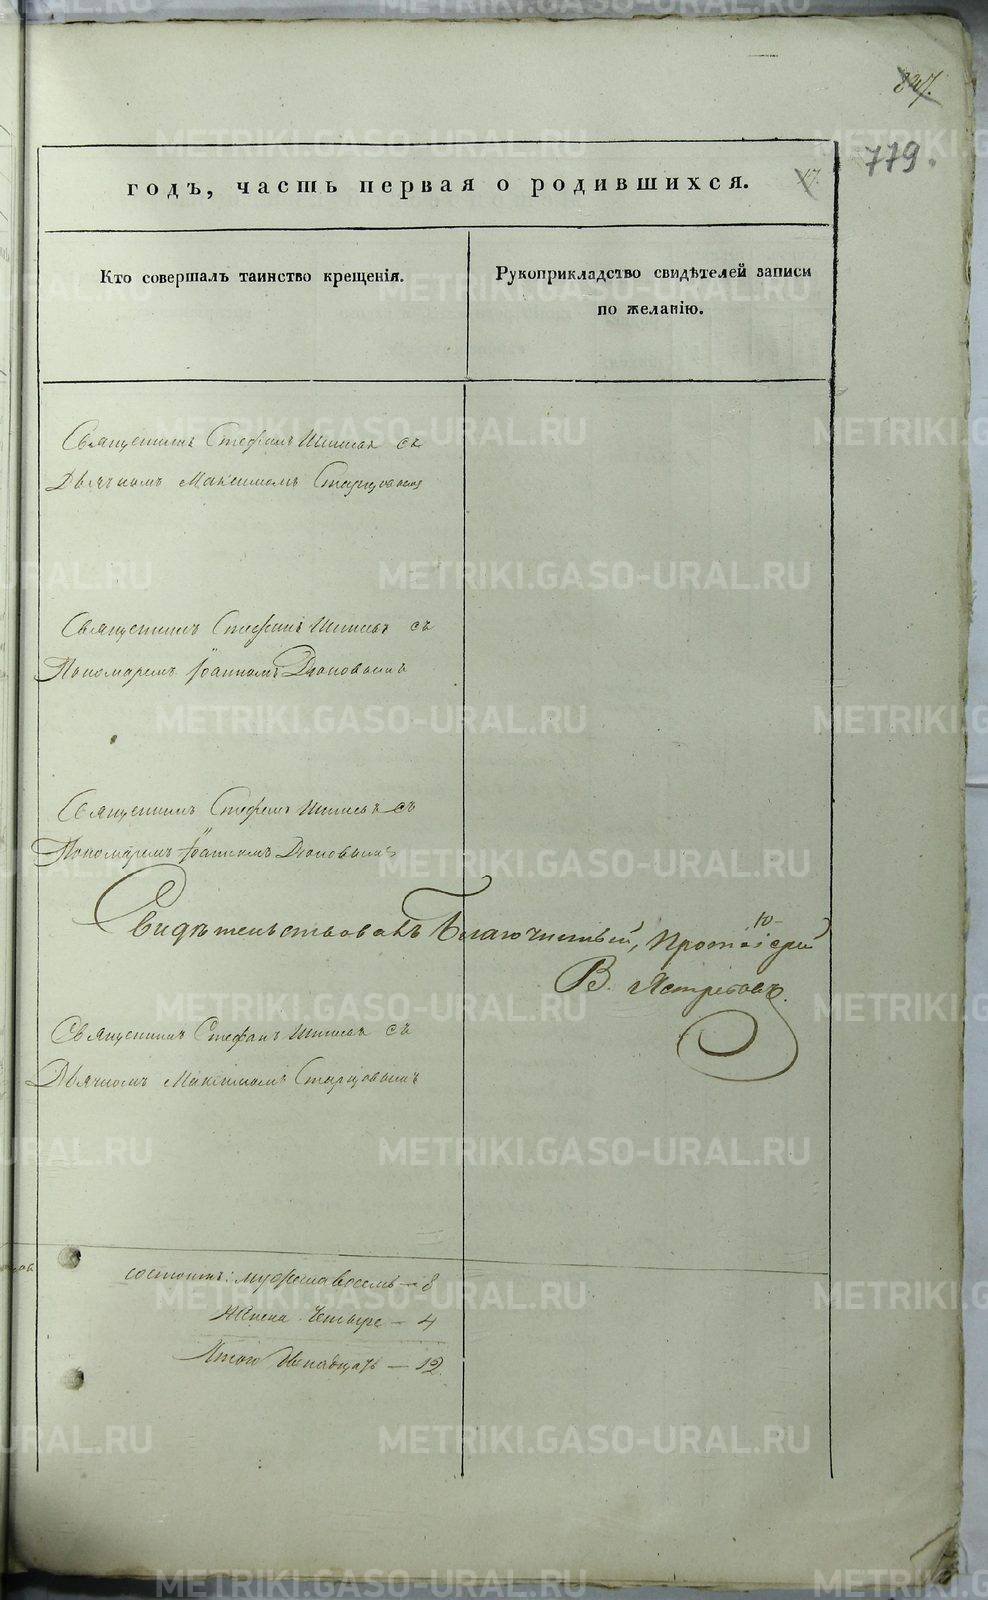 847.
779.
годъ, часть первая о родившихся.
17.
Кто совершалъ таинство крещенія.
Рукоприкладство свидѣтелей записи
по желанію.
Священникъ Стефанъ Шишевъ съ
Дьячкомъ Максимомъ Старцовымъ
Священникъ Стефанъ Шишевъ съ
Пономаремъ Іоанномъ Діоповымъ
Священникъ Стефанъ Шишевъ съ
Пономаремъ Іоанномъ
Свидѣтельствовалъ Благочинный, Протоіерей
В. Ястребовъ.
Священникъ Стефанъ Шишевъ съ
Дьячкомъ Максимомъ Старцовымъ
состоитъ: мужеска восемь — 8
Женска четыре — 4
Итого двенадцать — 12.
METRIKI.GASO-URAL.RU